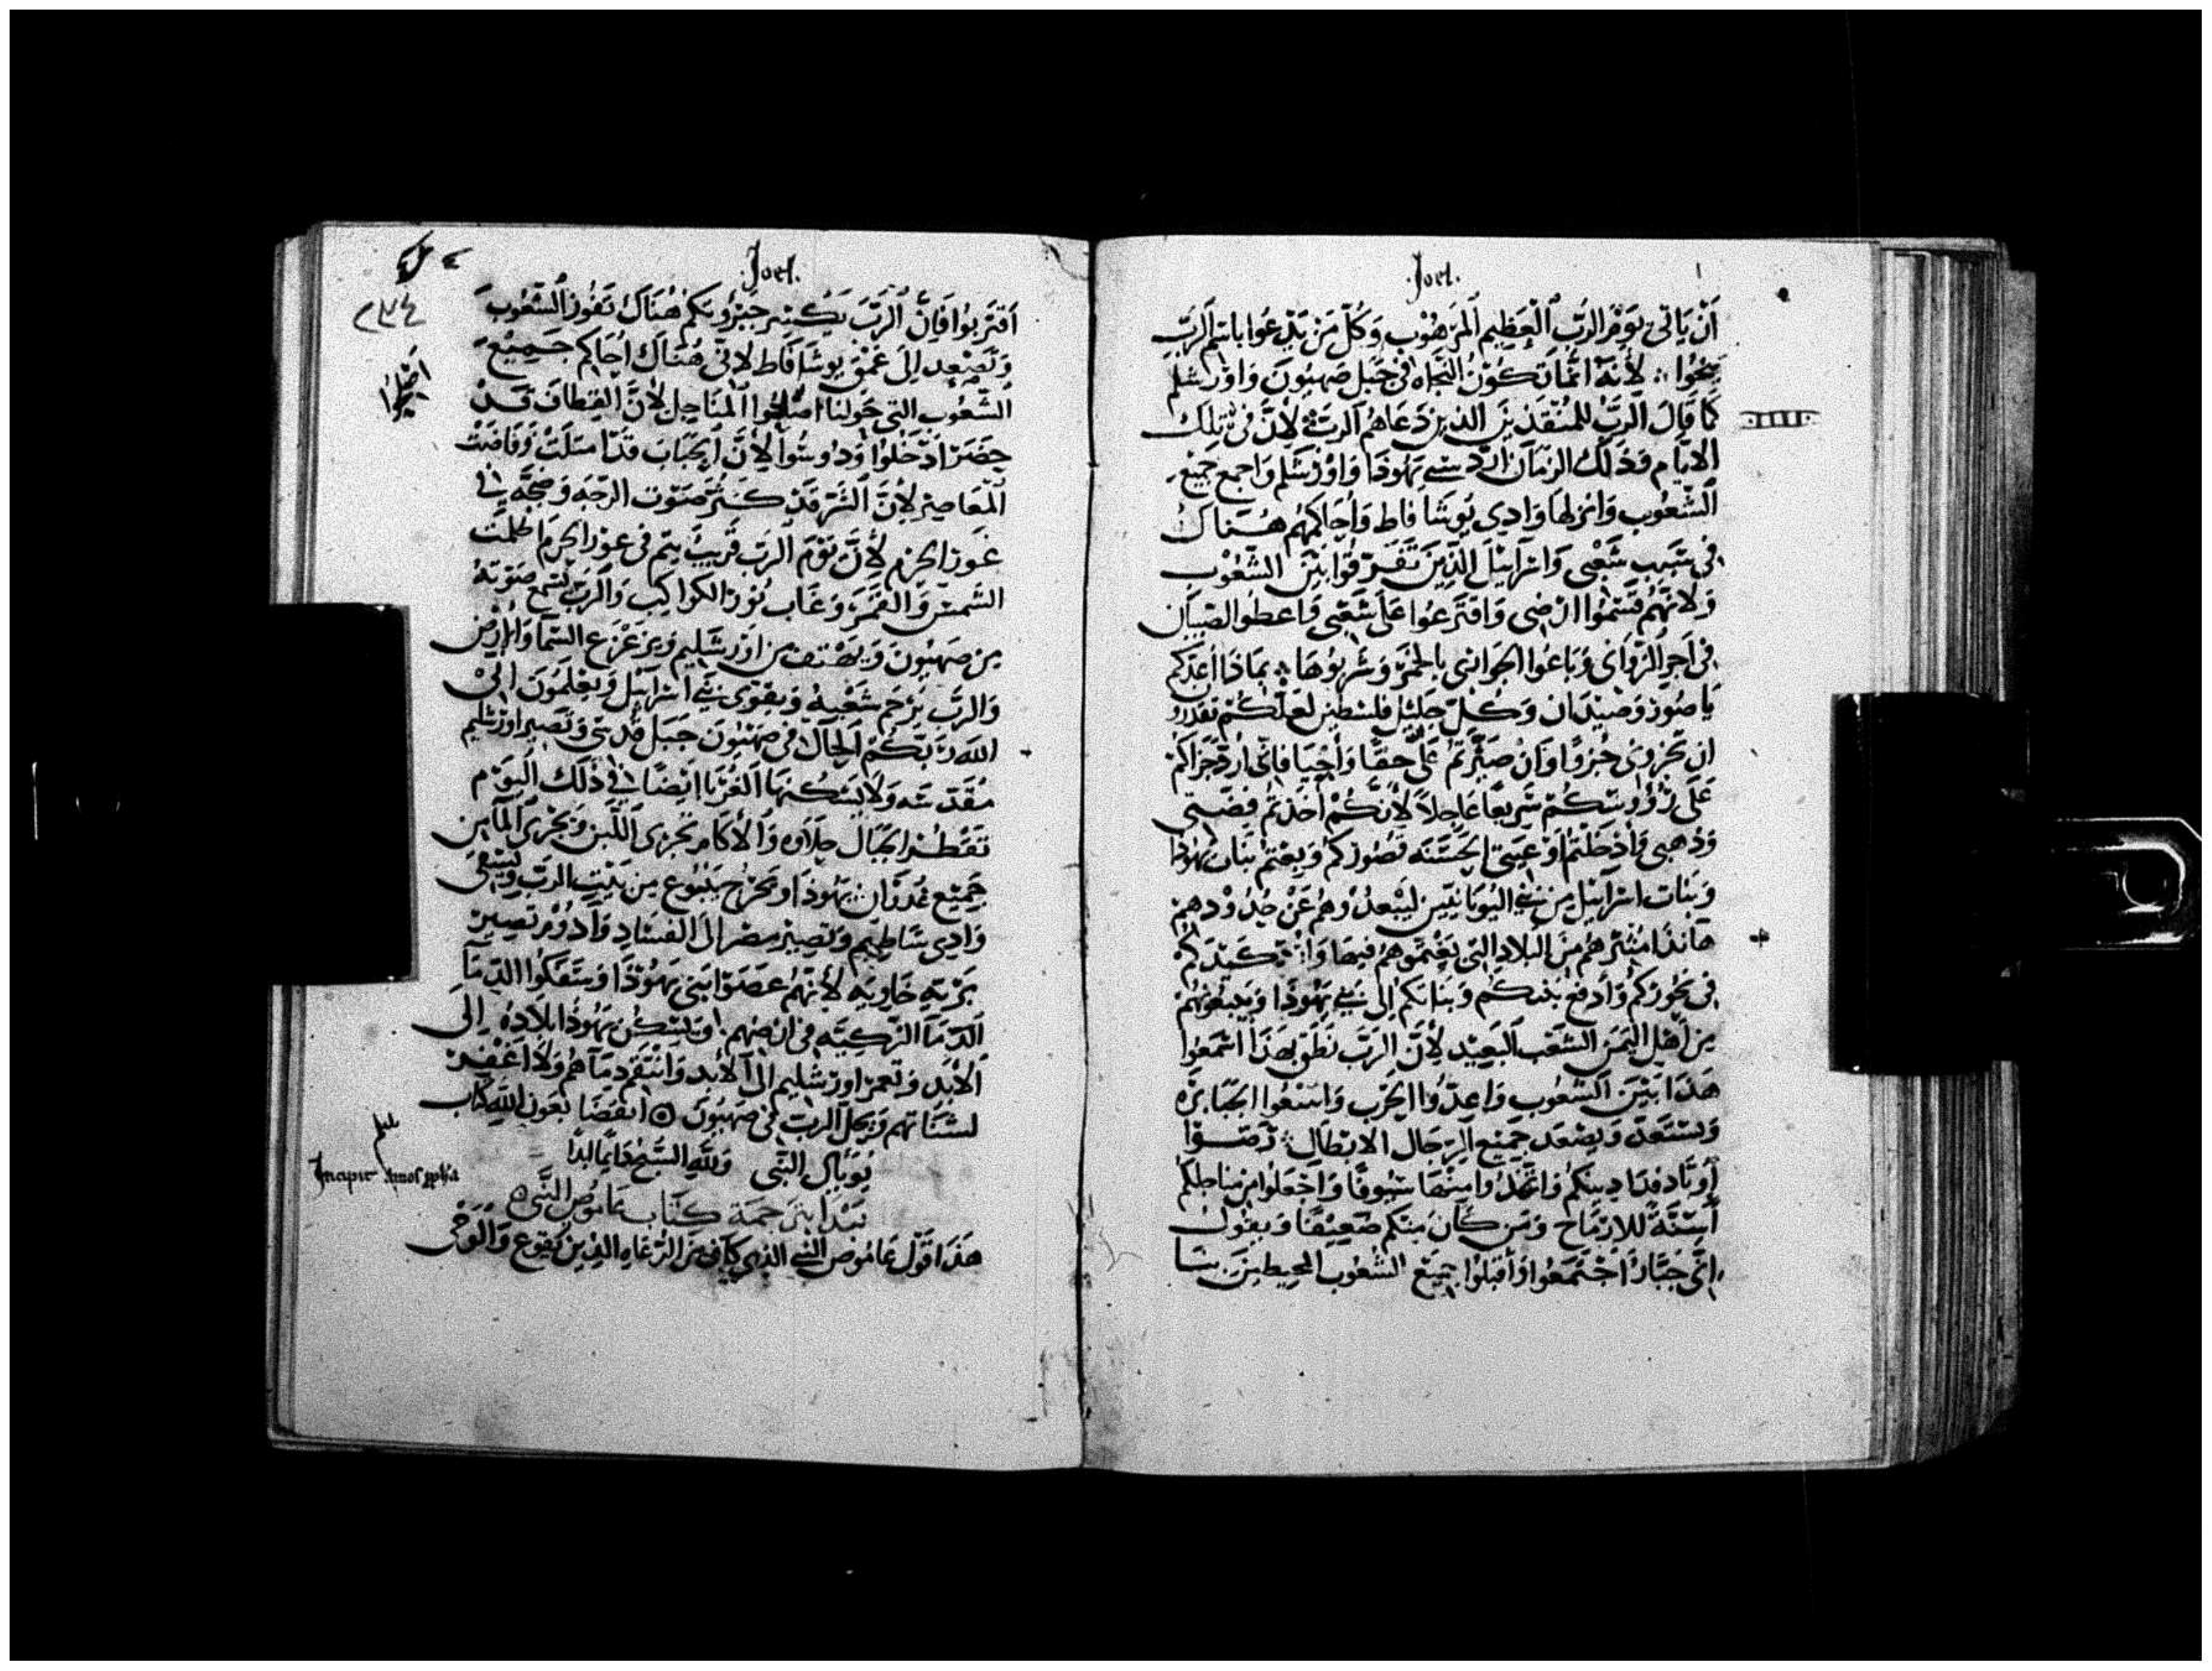 .Joel.
أن ياتى يوم الرب العظيم المرهوب وكل من يدعوا باسم الرب
ينجوا لانه انما تكون النجاه فى جبل صهيون واورشلم
كما قال الرب للمنقذين الذين دعاهم الرب لان فى تلك
الايام وذلك الزمان ارد سبى يهوذا واورشلم واجمع جميع
الشعوب وانزلها وادى يوشافاط واحاكمهم هناك
فى سبب شعبى واسرائيل الذين تفرقوا بين الشعوب
ولانهم قسموا ارضى واقترعوا على شعبى فاعطوا الصبيان
فى اجر الزوانى وباعوا الجوانى بالخمر وشربوها بماذا أعدكم
يا صور وصيدان وكل جليل فلسطين لعلكم تقدروا
ان تجزونى جزوا وان صيرتم على حقدا فانى ارد جزاكم
على رؤوسكم سريعا عاجلا لانكم اخذتم فضتى
وذهبى وادخلتم الحسنه قصوركم وبعتم بنات يهوذا
وبنات اسرائيل من بنى اليونانيين ليبعدوهم عن حدودهم
هانذا مثيرهم من البلاد التى بعتموهم فيها وارد كيدكم
فى نحوركم وأدفع بنيكم وبناتكم الى بنى يهوذا ويبيعونهم
من اهل اليمن الشعب البعيد لأن الرب نطق بهذا اسمعوا
هذا بين الشعوب واعدوا الحرب الجبابره
وتستعد ويصعد جميع الرجال الابطال
واتخذوا منها سيوفا واجعلوا من مناجلكم
أسنة للارماح ومن كان منكم ضعيفا ويقول
انى جبار اجتمعوا واقبلوا جميع الشعوب المحيطين بنا
.Joel.
٢٧٤
اقتربوا فان الرب يكسر جبروتكم هناك تفوز الشعوب
وتصعد الى عمق يوشافاط لانى هناك احاكم جميع
الشعوب التى حولنا اصلحوا المناجل لان القطاف قد
حضر ادخلوا ودوسوا لأن الجباب قد امتلت وفاضت
المعاصر لأن الشر قد كثر صوت الرجه وضجه فى
غور الحزم لأن يوم الرب قريب يتم فى غور الحزم اظلمت
الشمس والقمر وغاب نور الكواكب والرب يسمع صوته
من صهيون ويهتف من اورشليم ويزعزع السما والارض
والرب يرحم شعبه ويقوى بنى اسرائيل ويعلمون انى
الله ربكم الحال فى صهيون جبل قدسى وتصير اورشليم
مقدسه ولا يسكنها الغربا ايضا فى ذلك اليوم
تقطر الجبال حلاوه والاكام تجرى اللبن ويجرى المآ من
جميع غدران يهوذا ويخرج ينبوع من بيت الرب ويسقى
وادى ساطيم وتصير مصر الى الفساد وادوم تصير
بريه خاويه لأنهم عصوا بنى يهوذا وسفكوا الدما
الدما الزكيه فى ارضهم وتسكن يهوذا بلاده الى
الابد وتعمر اورشليم الى الابد وانتقم دماهم ولا اغفر
لسناتهم ويحل الرب فى صهيون انقضا بعون الله كتاب
يويال النبى ولله السبح دايما ابدا
Incipit Amos ppha
نبدا بترجمة كتاب عاموص النبى
هذا قول عاموص النبى الذى كان من الرعاه الذين والوحى